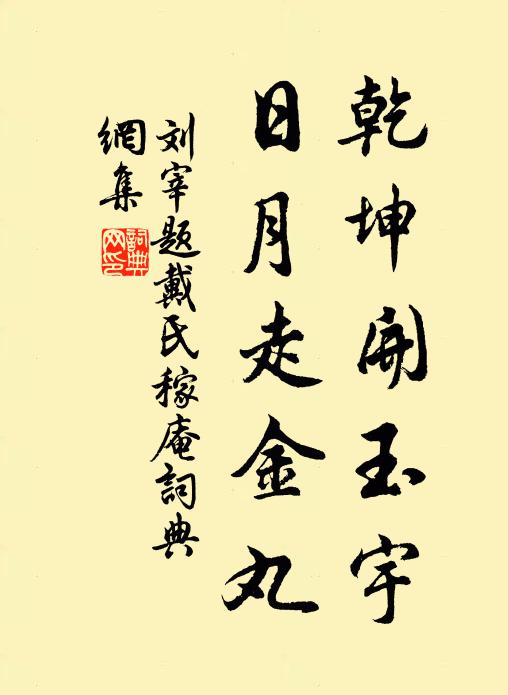 乾坤開玉宇
日月走金丸
刘宰题戴氏稼庵詞典
網集
詞典網印